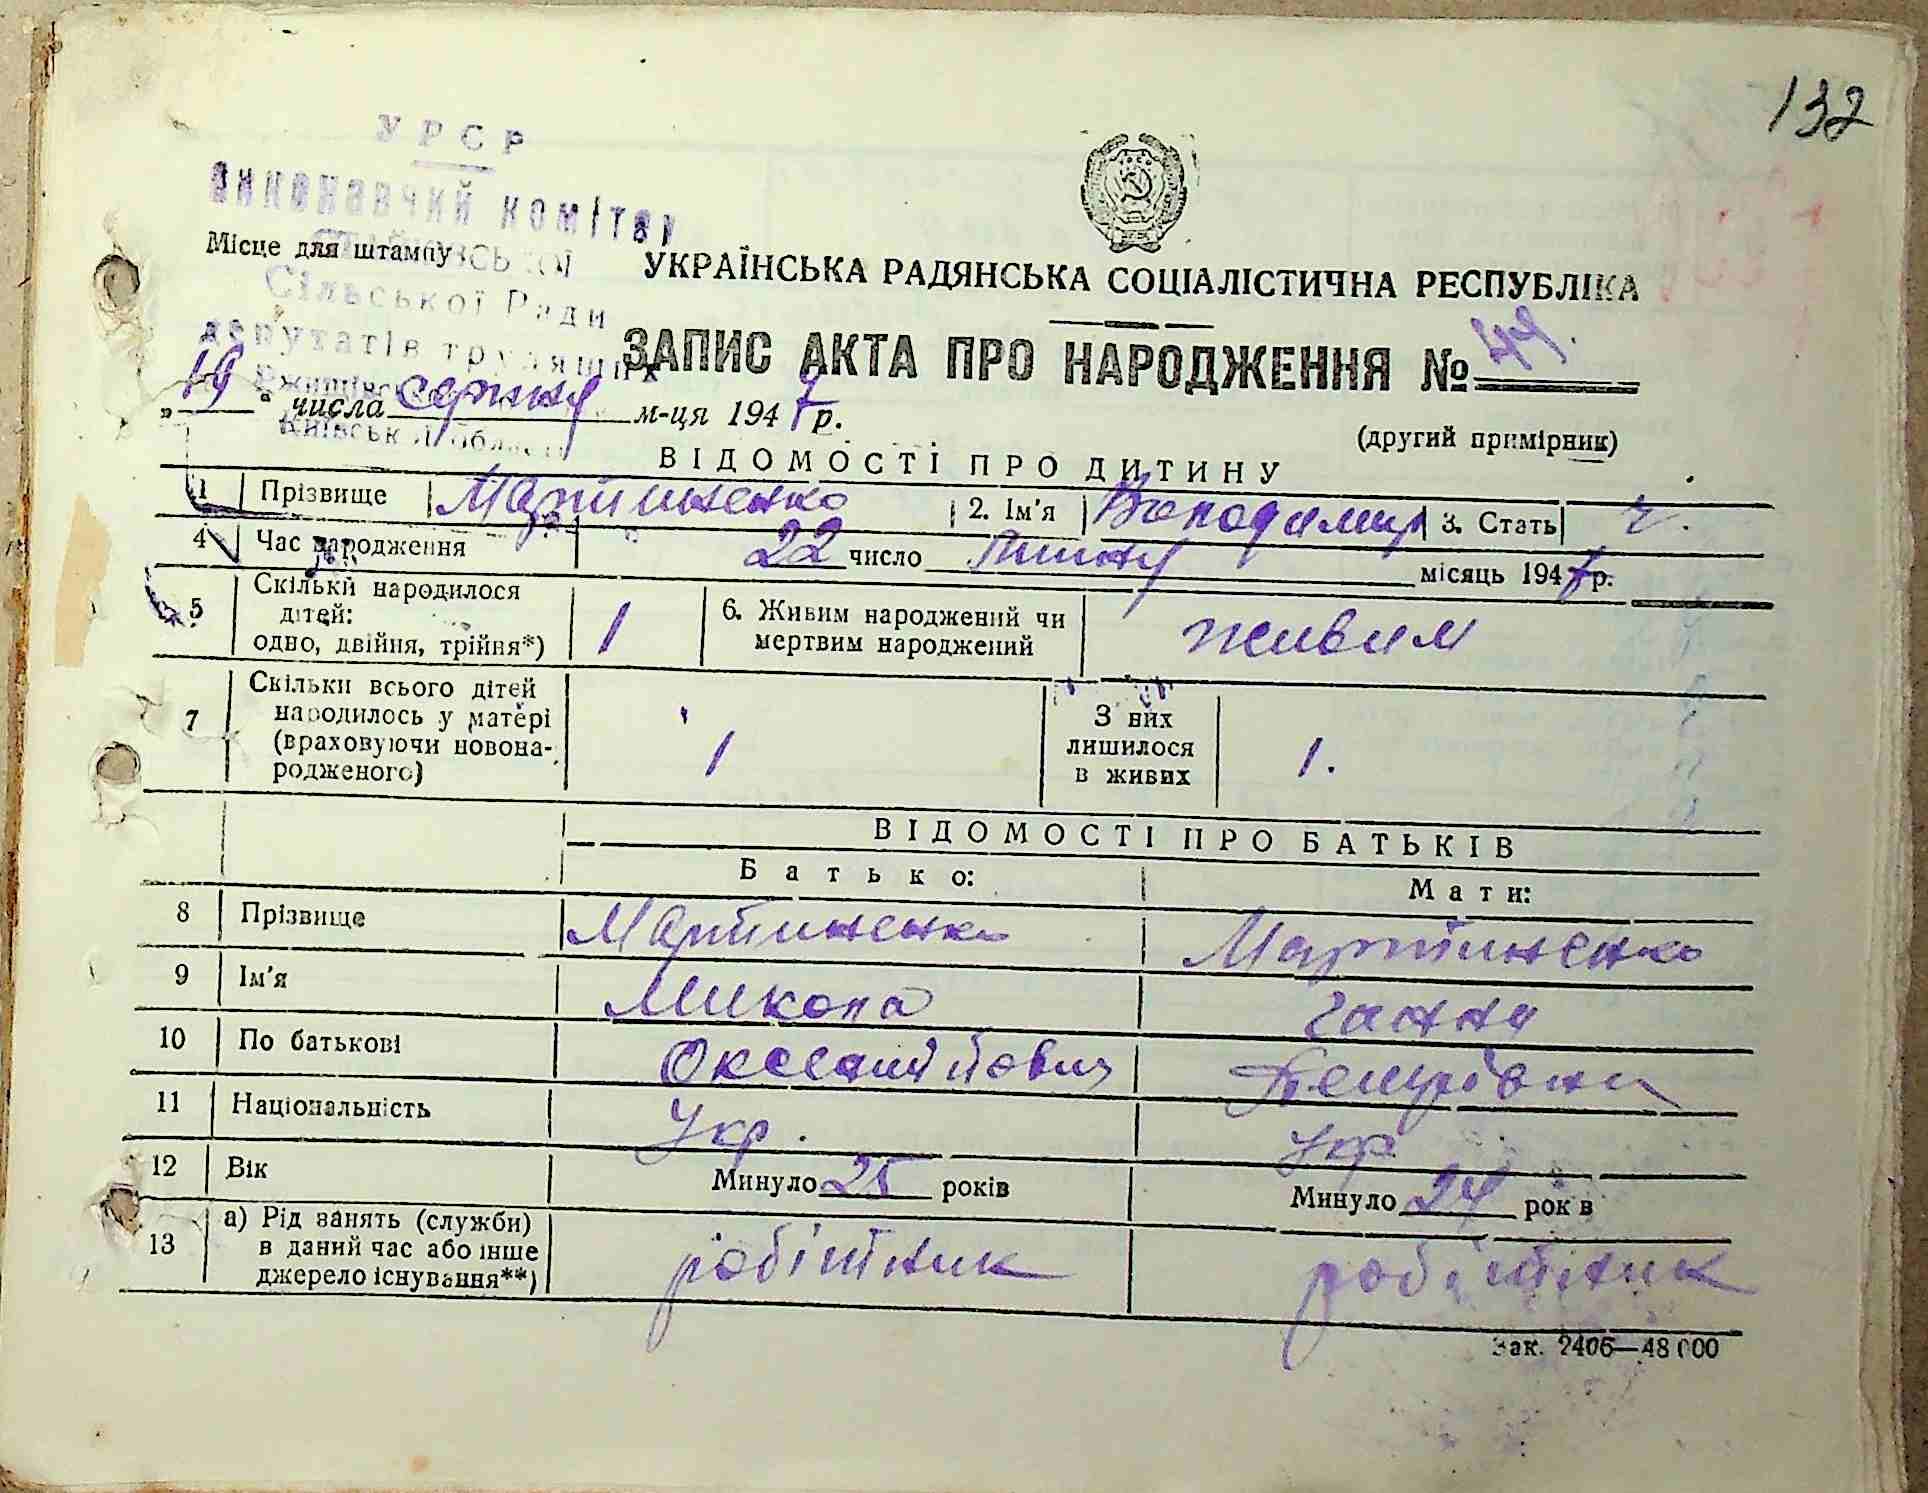 132
УРСР
Виконавчий комітет
Місце для штампу
Сільської Ради
депутатів трудящих
Київської області
УКРАЇНСЬКА РАДЯНСЬКА СОЦІАЛІСТИЧНА РЕСПУБЛІКА
ЗАПИС АКТА ПРО НАРОДЖЕННЯ № 44
„19“ числа серпня м-ця 1947 р.
(другий примірник)
ВІДОМОСТІ ПРО ДИТИНУ
1 Прізвище Мартиненко 2. Ім'я Володимир 3. Стать ч.
4 Час народження 22 число липня місяць 1947 р.
5 Скільки народилося
дітей:
одно, двійня, трійня*) 1
6. Живим народжений чи
мертвим народжений живим
7 Скільки всього дітей
народилось у матері
(враховуючи новона-
родженого) 1
З них
лишилося
в живих 1.
ВІДОМОСТІ ПРО БАТЬКІВ
Батько: Мати:
8 Прізвище Мартиненко Мартиненко
9 Ім'я Микола Ганна
10 По батькові
11 Національність Укр. Укр
12 Вік Минуло 25 років Минуло 24 рок в
13 а) Рід занять (служби)
в даний час або інше
джерело існування**) робітник робітник
Зак. 2406—48 000